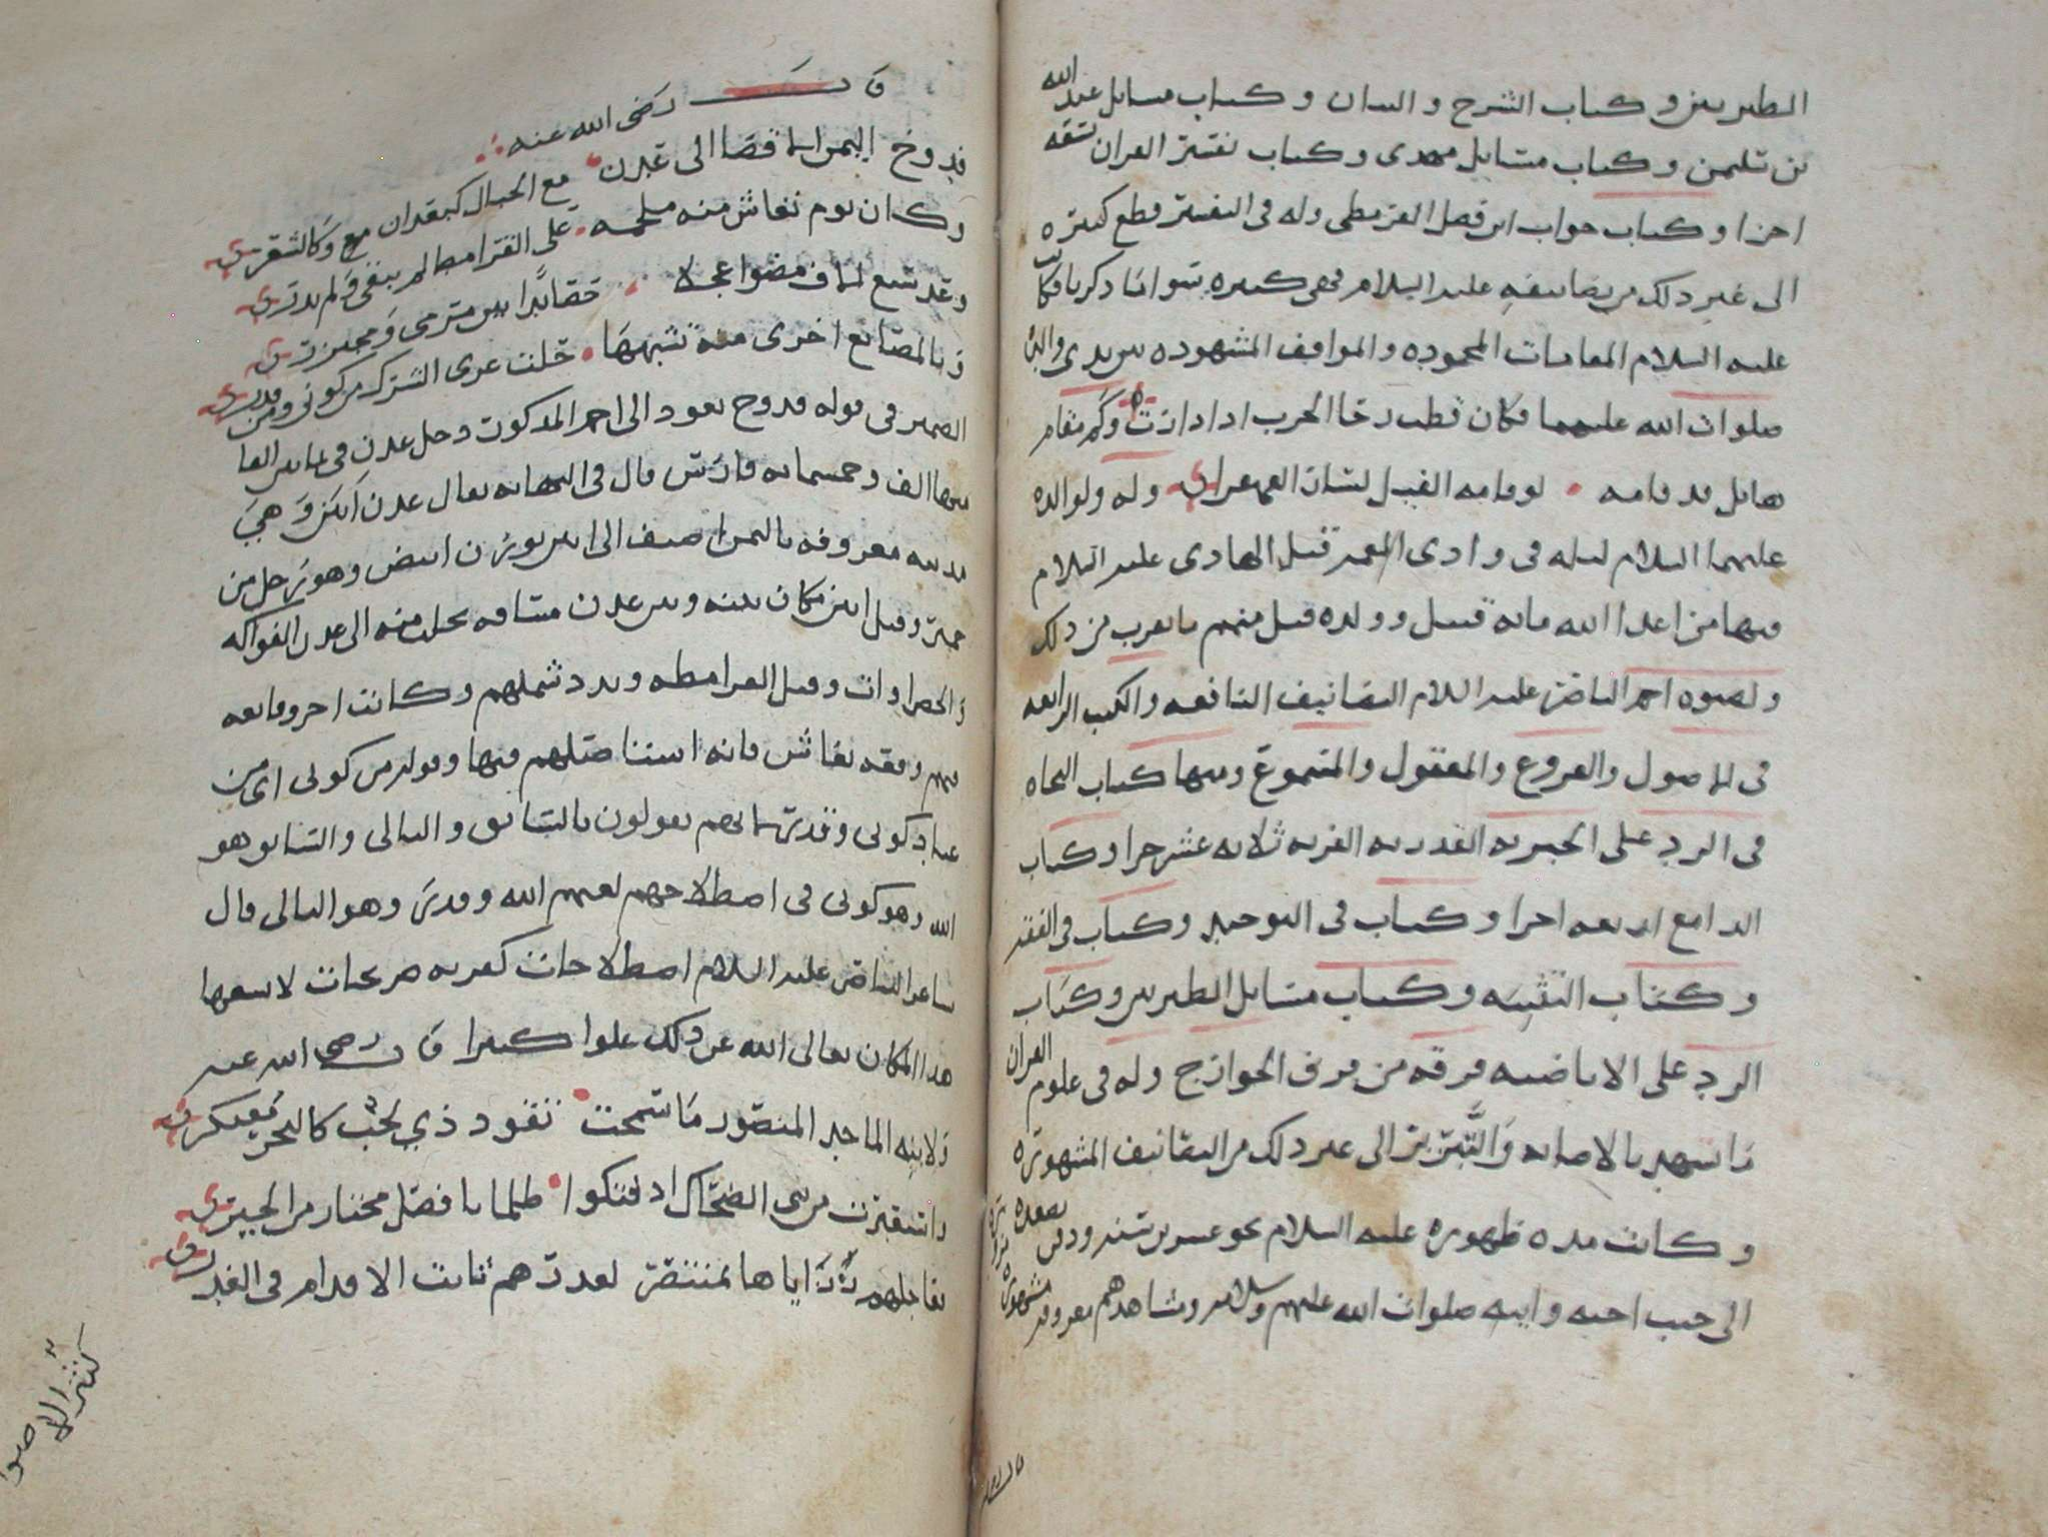 الطبريين وكتاب الشرح والبيان وكتاب مسايل عبد الله
بن سليمن وكتاب مسايل مهدى وكتاب تفسير القران تسعه
اجزا وكتاب جواب ابن فضل القرمطى وله فى التفسير قطع كثيره
الى غير ذلك من تصانيفه عليه السلام فهى كثيره سوا ما ذكرنا وكانت
عليه السلام المقامات المحموده والمواقف المشهوده بين يدى والده
صلوات الله عليهما فكان قطب رحا الحرب اذا دارت وكم مقام
هايل قد قامه لو قامه الفيل لشان وله ولوالده
عليهما السلام ليله فى وادى قبل الهادى عليه السلام
فيها من اعدا الله مايه قتيل وولده قتل منهم ما يقرب من ذلك
ولصنوه احمد الناصر عليه السلام التصانيف النافعه والكتب الرايعه
فى الاصول والفروع والمعقول والمسموع ومنها كتاب النجاه
فى الرد على الجبريه القدريه الفريه ثلاثه عشر جزا وكتاب
الدامغ اربعه اجزا وكتاب فى التوحيد وكتاب فى الفقه
وكتاب التنبيه وكتاب مسايل الطبريين وكتاب
الرد على الاباضيه فرقه من فرق الخوارج وله فى علوم القران
ما شهد بالاصابه والتبريز الى غير ذلك من التصانيف المشهوره
وكانت مده ظهوره عليه السلام نحو عشرين سنه ودفن بصعده
الى جنب اخيه وابيه صلوات الله عليهم وسلامه ومشاهدهم معروفه مشهوره
قال رضى الله عنه
فدوخ اليمن الاقصا الى عدن مع الجبال كبعدان مع وكالشعرى
وكان يوم نغاش منه ملحمه على القرامط لم يبقى ولم يذرى
وقد سبع الاف مضوا عجلا حصائدًا بين مترمى ومجتزرى
وبالمصانع اخرى منه تشبهها حلت عرى الشرك من كونى ومن قدرى
الضمير فى قوله فدوخ يعود الى احمد المذكور ودخل عدن فى ثمانين الفا
منها الف وخمسمايه فارس قال فى النهايه يقال عدن ابين وهى
مدينه معروفه باليمن اضيف الى ابين بوزن ابيض وهو رجل من
حمير وقيل ابين مكان بينه وبين عدن مسافه يجلب منه الى عدن الفواكه
والخضراوات وقتل القرامطه وبدد شملهم وكانت اخر وقايعه
فيهم وقعه نغاش فانه استاصلهم فيها وقوله من كونى اى من
عباد كونى وقدر لانهم يقولون بالسابق والتالى والسابق هو
الله وهو كونى فى اصطلاحهم لعنهم الله وقدر وهو التالى قال
شاعر الناصر عليه السلام اصطلاحات كفريه هرجات لا يسعها
هذا المكان تعالى الله عن ذلك علوا كبيرا قال رضى الله عنه
ولابنه الماجد المنصور ما سمحت نفود ذي لجب كالبحر معتكرى
واستعبرت من بنى الضحاك اذ فتكوا ظلما بافضل مختار من الخيرى
بمنتصر لعددهم ثابت الاقدام فى الغدرى